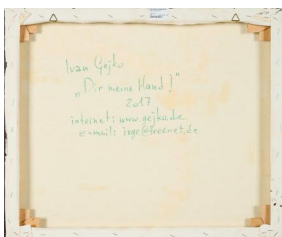 Ivan Gejko
„Dir meine Hand!"
2017
internet: www.gejko.de
e-mail: ivge@freenet.de